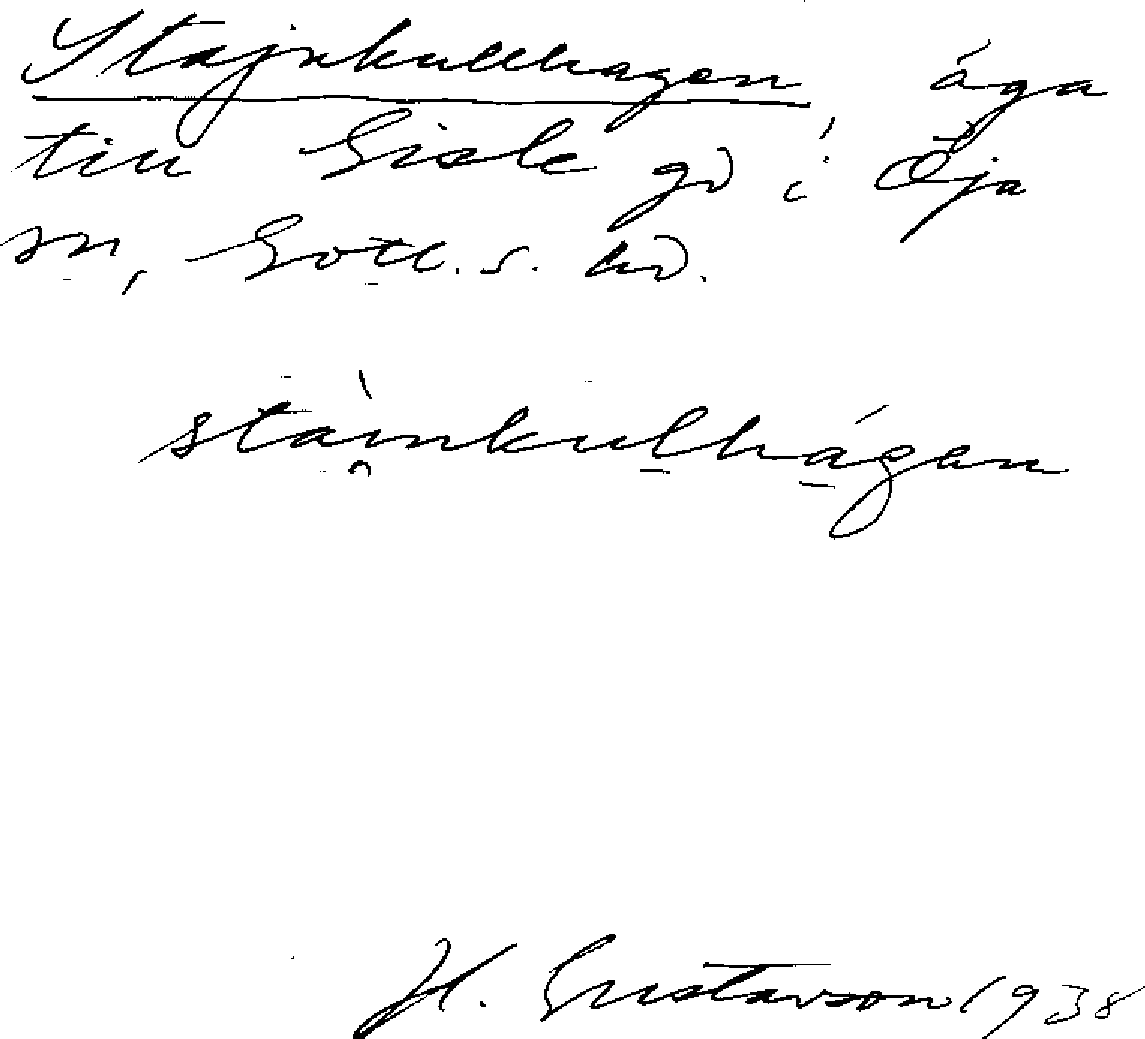 Stajnkullhagen, äga
till Gisle gd i Öja
sn, Gotl. s. hd.
stàinkulhágan
H. Gustavson 1938